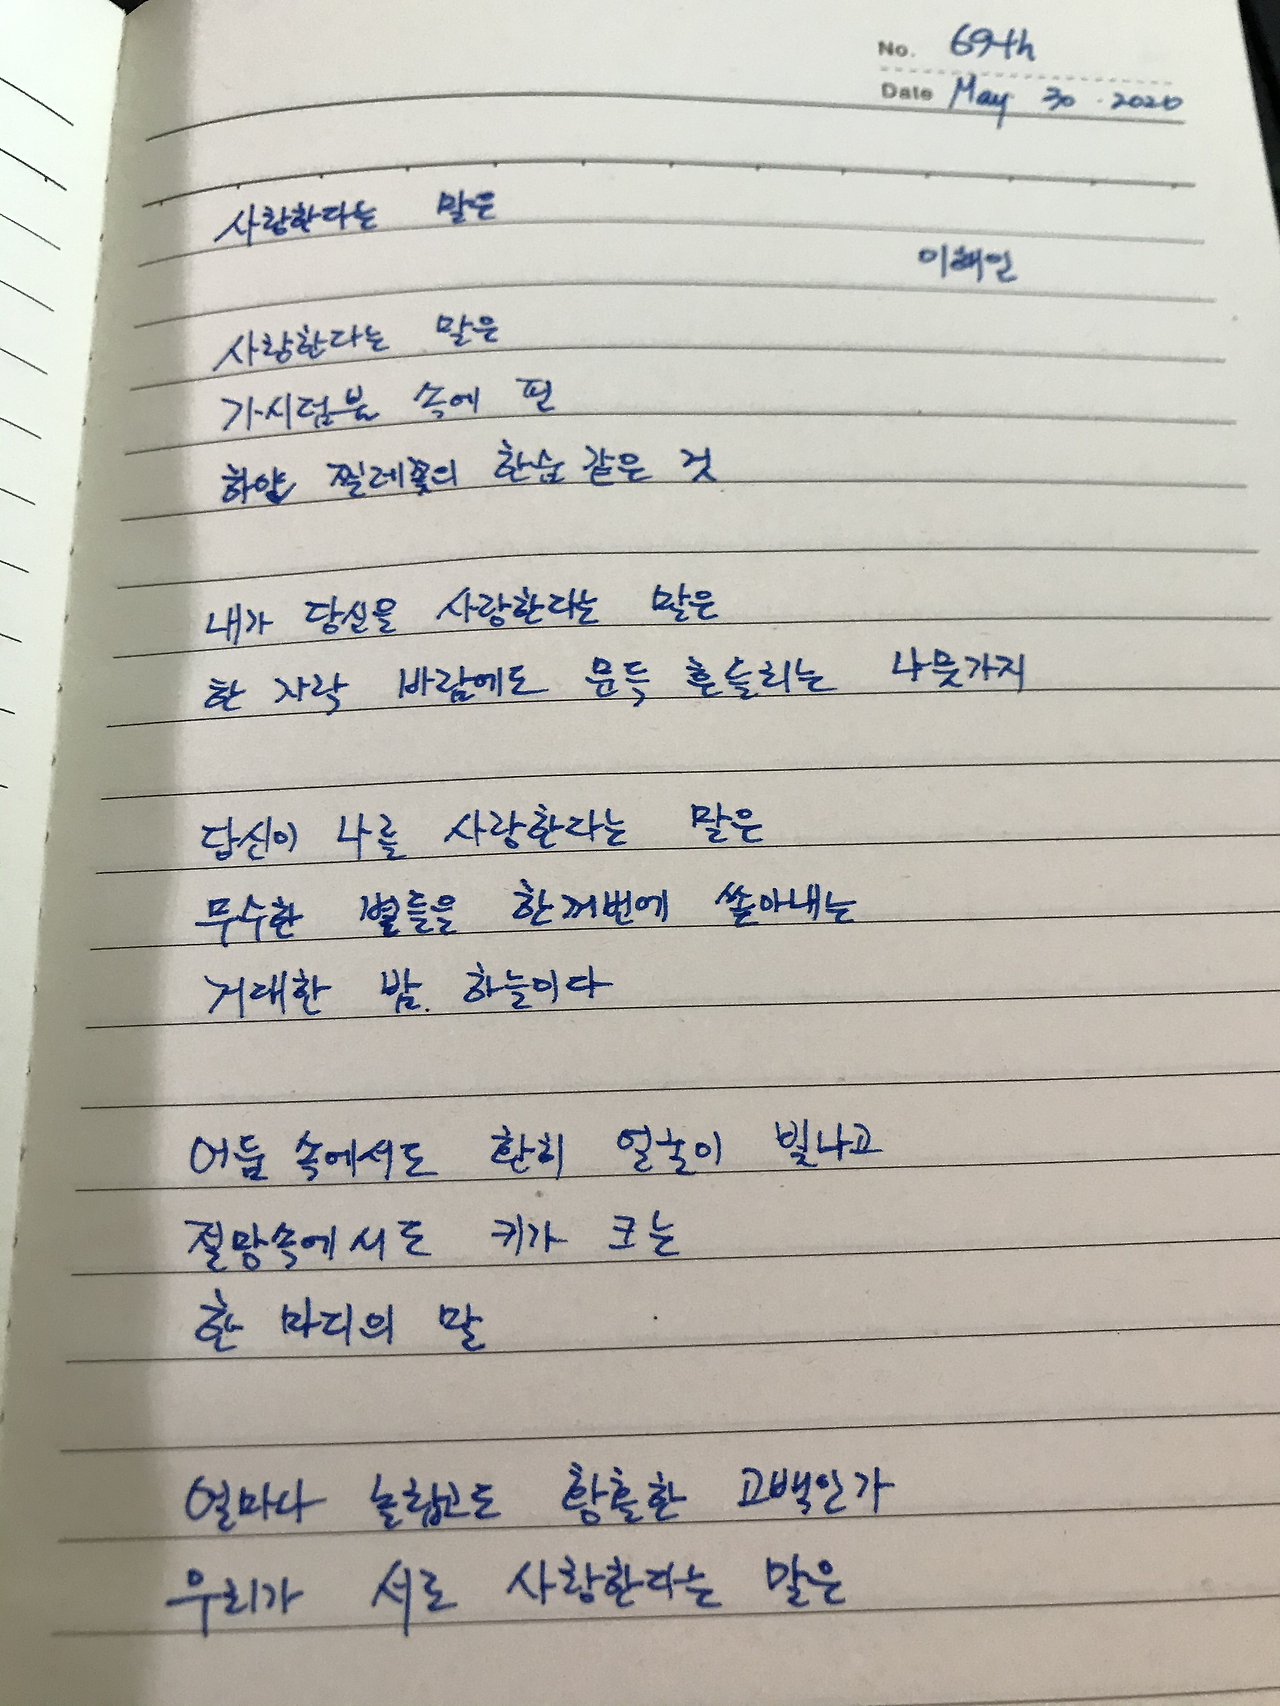 No. 69th
Date May 30. 2020
사랑한다는 말은
이해인
사랑한다는 말은
가시덤불 속에 핀
하얀 찔레꽃의 한숨 같은 것
내가 당신을 사랑한다는 말은
한 자락 바람에도 문득 흔들리는 나뭇가지
당신이 나를 사랑한다는 말은
무수한 별들을 한꺼번에 쏟아내는
거대한 밤. 하늘이다
어둠 속에서도 환히 얼굴이 빛나고
절망속에서도 키가 크는
한 마디의 말
얼마나 놀랍고도 황홀한 고백인가
우리가 서로 사랑한다는 말은